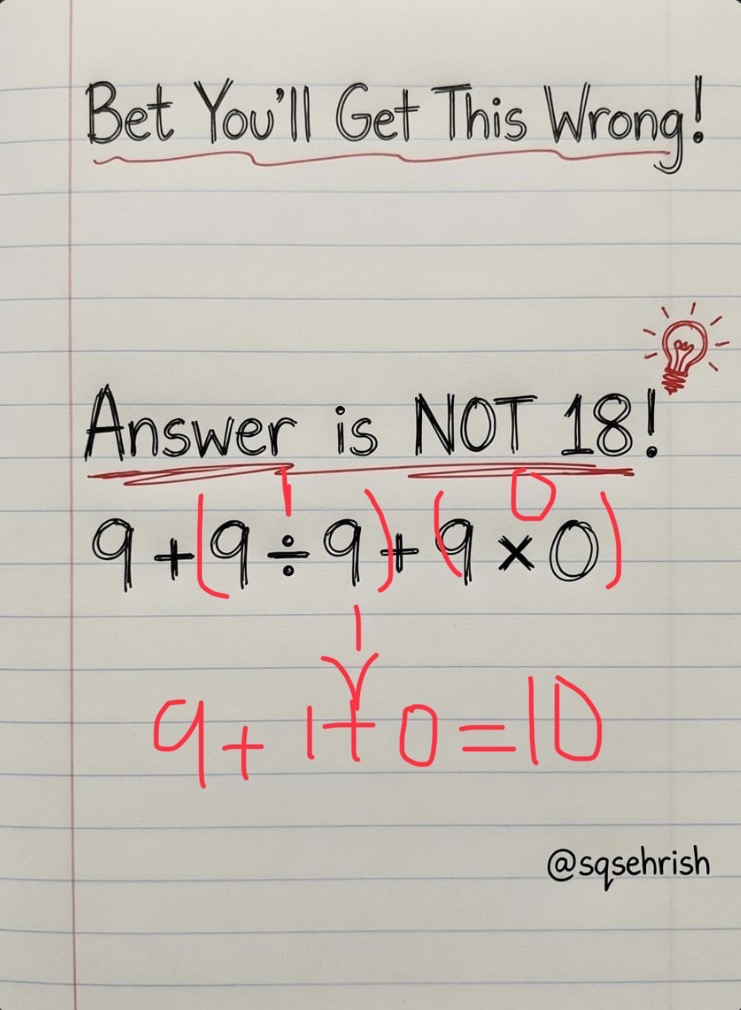 Bet You'll Get This Wrong!
Answer is NOT 18!
1 0
9 + (9 ÷ 9) + (9 × 0)
9 + 1 + 0 = 10
@sqsehrish